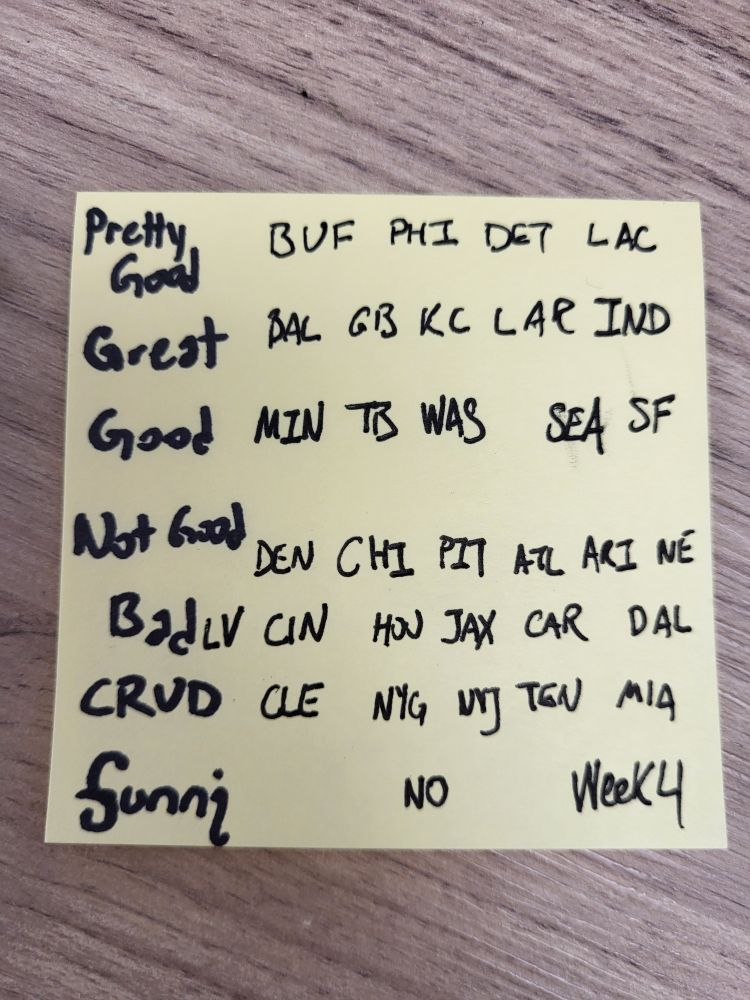 Pretty Good BUF PHI DET LAC
Great BAL GB KC LAR IND
Good MIN TB WAS SEA SF
Not Good DEN CHI PIT ATL ARI NE
Bad LV CIN HOU JAX CAR DAL
CRUD CLE NYG NYJ TEN MIA
Funni NO Week 4